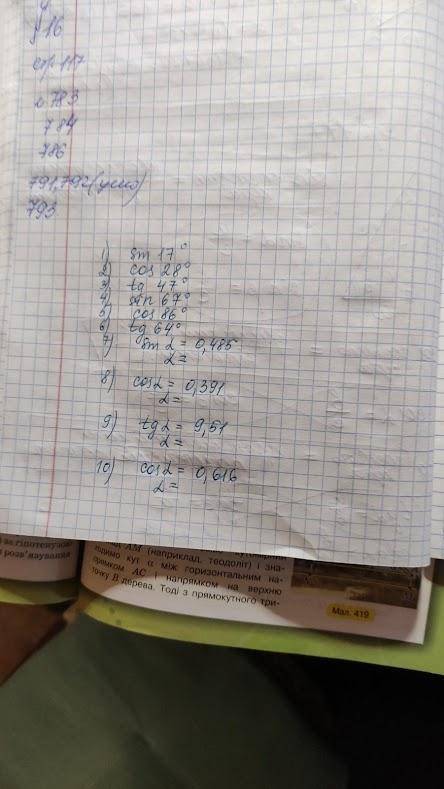 §16
стр 117
№783
784
786
791, 792 (усно)
793
1) sin 17°
2) cos 28°
3) tg 47°
4) sin 67°
5) cos 86°
6) tg 64°
7) sin α = 0,485
α =
8) cos α = 0,391
α =
9) tg α = 9,51
α =
10) cos α = 0,616
α =
за гіпотенузою
розв'язування
AM (наприклад, теодоліт) і зна-
ходимо кут α між горизонтальним на-
прямком AC і напрямком на верхню
точку B дерева. Тоді з прямокутного три-
Мал. 419